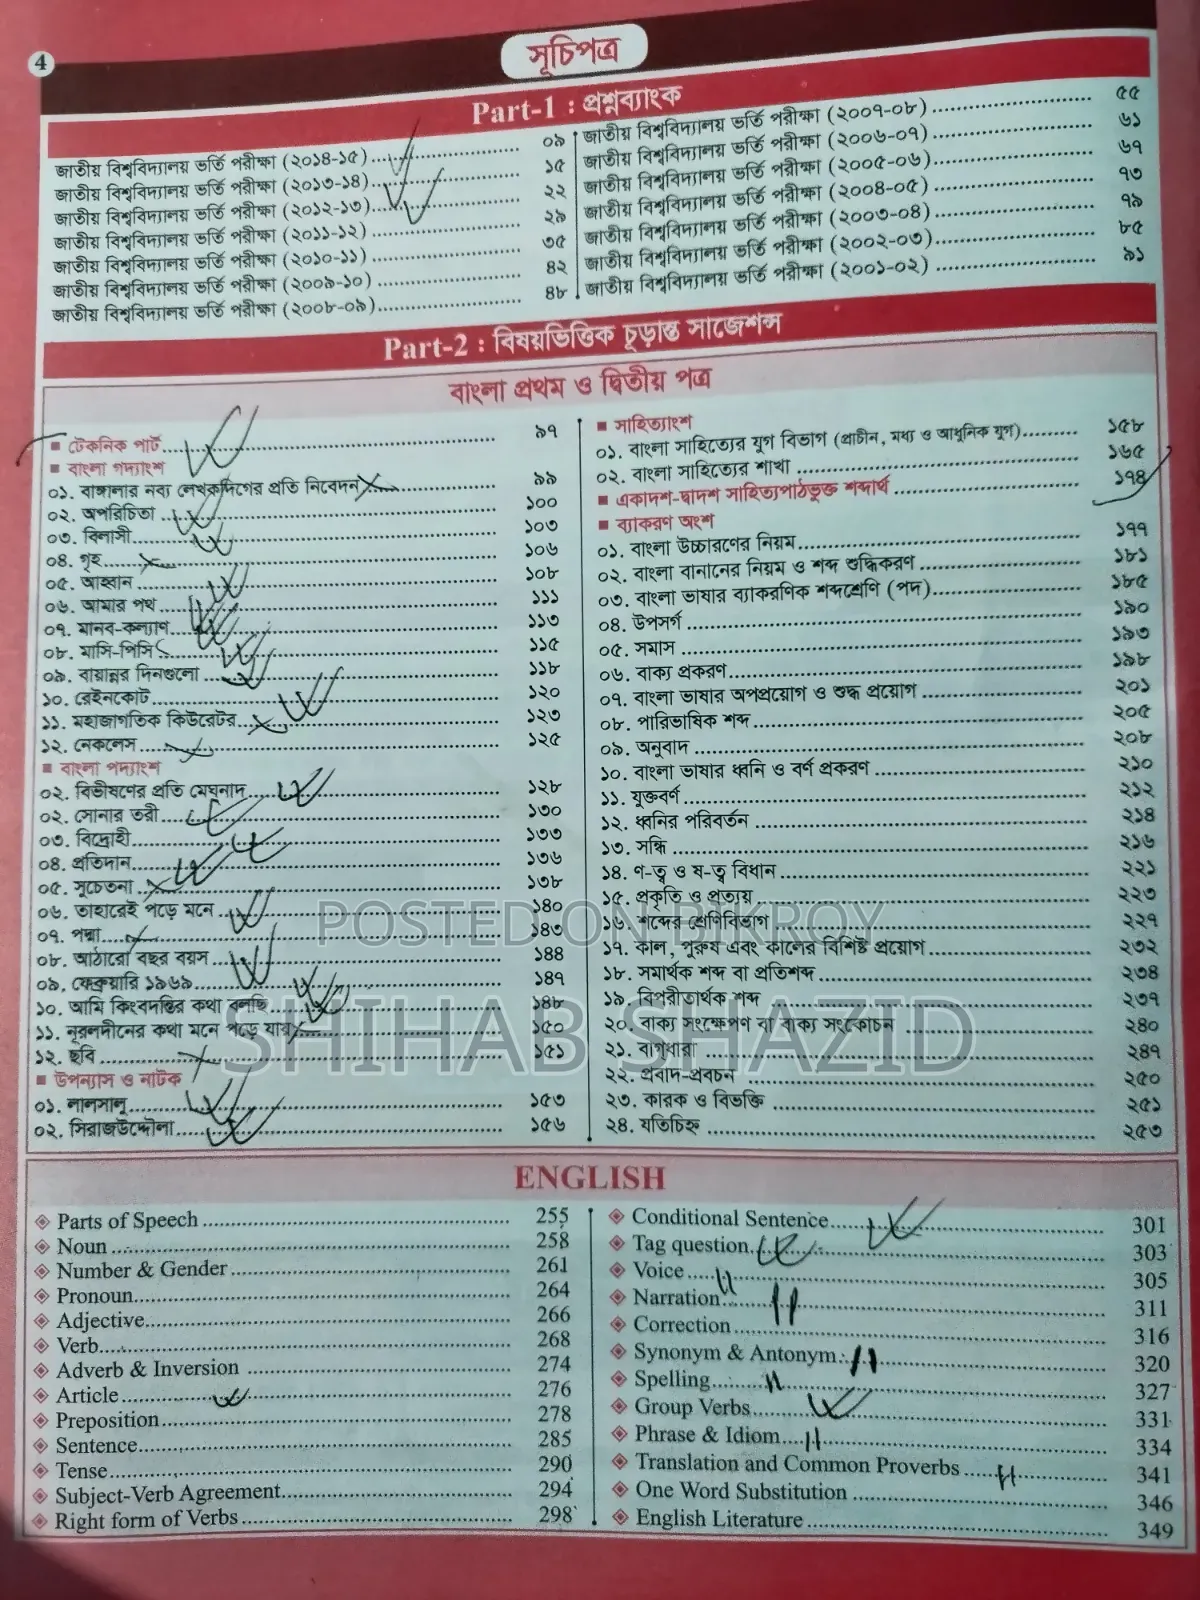 4
সূচিপত্র
Part-1 : প্রশ্নব্যাংক
জাতীয় বিশ্ববিদ্যালয় ভর্তি পরীক্ষা (২০১৪-১৫) ০৯
জাতীয় বিশ্ববিদ্যালয় ভর্তি পরীক্ষা (২০১৩-১৪) ১৫
জাতীয় বিশ্ববিদ্যালয় ভর্তি পরীক্ষা (২০১২-১৩) ২২
জাতীয় বিশ্ববিদ্যালয় ভর্তি পরীক্ষা (২০১১-১২) ২৯
জাতীয় বিশ্ববিদ্যালয় ভর্তি পরীক্ষা (২০১০-১১) ৩৫
জাতীয় বিশ্ববিদ্যালয় ভর্তি পরীক্ষা (২০০৯-১০) ৪২
জাতীয় বিশ্ববিদ্যালয় ভর্তি পরীক্ষা (২০০৮-০৯) ৪৮
জাতীয় বিশ্ববিদ্যালয় ভর্তি পরীক্ষা (২০০৭-০৮) ৫৫
জাতীয় বিশ্ববিদ্যালয় ভর্তি পরীক্ষা (২০০৬-০৭) ৬১
জাতীয় বিশ্ববিদ্যালয় ভর্তি পরীক্ষা (২০০৫-০৬) ৬৭
জাতীয় বিশ্ববিদ্যালয় ভর্তি পরীক্ষা (২০০৪-০৫) ৭৩
জাতীয় বিশ্ববিদ্যালয় ভর্তি পরীক্ষা (২০০৩-০৪) ৭৯
জাতীয় বিশ্ববিদ্যালয় ভর্তি পরীক্ষা (২০০২-০৩) ৮৫
জাতীয় বিশ্ববিদ্যালয় ভর্তি পরীক্ষা (২০০১-০২) ৯১
Part-2 : বিষয়ভিত্তিক চূড়ান্ত সাজেশন্স
বাংলা প্রথম ও দ্বিতীয় পত্র
টেকনিক পার্ট ৯৭
বাংলা গদ্যাংশ
০১. বাঙ্গালার নব্য লেখকদিগের প্রতি নিবেদন ৯৯
০২. অপরিচিতা ১০০
০৩. বিলাসী ১০৩
০৪. গৃহ ১০৬
০৫. আহ্বান ১০৮
০৬. আমার পথ ১১১
০৭. মানব-কল্যাণ ১১৩
০৮. মাসি-পিসি ১১৫
০৯. বায়ান্নর দিনগুলো ১১৮
১০. রেইনকোট ১২০
১১. মহাজাগতিক কিউরেটর ১২৩
১২. নেকলেস ১২৫
বাংলা পদ্যাংশ
০২. বিভীষণের প্রতি মেঘনাদ ১২৮
০২. সোনার তরী ১৩০
০৩. বিদ্রোহী ১৩৩
০৪. প্রতিদান ১৩৬
০৫. সুচেতনা ১৩৮
০৬. তাহারেই পড়ে মনে ১৪০
০৭. পদ্মা ১৪৩
০৮. আঠারো বছর বয়স ১৪৪
০৯. ফেব্রুয়ারি ১৯৬৯ ১৪৭
১০. আমি কিংবদন্তির কথা বলছি ১৪৮
১১. নূরলদীনের কথা মনে পড়ে যায় ১৫০
১২. ছবি ১৫১
উপন্যাস ও নাটক
০১. লালসালু ১৫৩
০২. সিরাজউদ্দৌলা ১৫৬
সাহিত্যাংশ
০১. বাংলা সাহিত্যের যুগ বিভাগ (প্রাচীন, মধ্য ও আধুনিক যুগ) ১৫৮
০২. বাংলা সাহিত্যের শাখা ১৬৫
একাদশ-দ্বাদশ সাহিত্যপাঠভুক্ত শব্দার্থ ১৭৪
ব্যাকরণ অংশ
০১. বাংলা উচ্চারণের নিয়ম ১৭৭
০২. বাংলা বানানের নিয়ম ও শব্দ শুদ্ধিকরণ ১৮১
০৩. বাংলা ভাষার ব্যাকরণিক শব্দশ্রেণি (পদ) ১৮৫
০৪. উপসর্গ ১৯০
০৫. সমাস ১৯৩
০৬. বাক্য প্রকরণ ১৯৮
০৭. বাংলা ভাষার অপপ্রয়োগ ও শুদ্ধ প্রয়োগ ২০১
০৮. পারিভাষিক শব্দ ২০৫
০৯. অনুবাদ ২০৮
১০. বাংলা ভাষার ধ্বনি ও বর্ণ প্রকরণ ২১০
১১. যুক্তবর্ণ ২১২
১২. ধ্বনির পরিবর্তন ২১৪
১৩. সন্ধি ২১৬
১৪. ণ-ত্ব ও ষ-ত্ব বিধান ২২১
১৫. প্রকৃতি ও প্রত্যয় ২২৩
১৬. শব্দের শ্রেণিবিভাগ ২২৭
১৭. কাল, পুরুষ এবং কালের বিশিষ্ট প্রয়োগ ২৩২
১৮. সমার্থক শব্দ বা প্রতিশব্দ ২৩৪
১৯. বিপরীতার্থক শব্দ ২৩৭
২০. বাক্য সংক্ষেপণ বা বাক্য সংকোচন ২৪০
২১. বাগ্ধারা ২৪৭
২২. প্রবাদ-প্রবচন ২৫০
২৩. কারক ও বিভক্তি ২৫১
২৪. যতিচিহ্ন ২৫৩
POSTED ON BIKROY
SHIHAB SHAZID
ENGLISH
Parts of Speech 255
Noun 258
Number & Gender 261
Pronoun 264
Adjective 266
Verb 268
Adverb & Inversion 274
Article 276
Preposition 278
Sentence 285
Tense 290
Subject-Verb Agreement 294
Right form of Verbs 298
Conditional Sentence 301
Tag question 303
Voice 305
Narration 311
Correction 316
Synonym & Antonym 320
Spelling 327
Group Verbs 331
Phrase & Idiom 334
Translation and Common Proverbs 341
One Word Substitution 346
English Literature 349